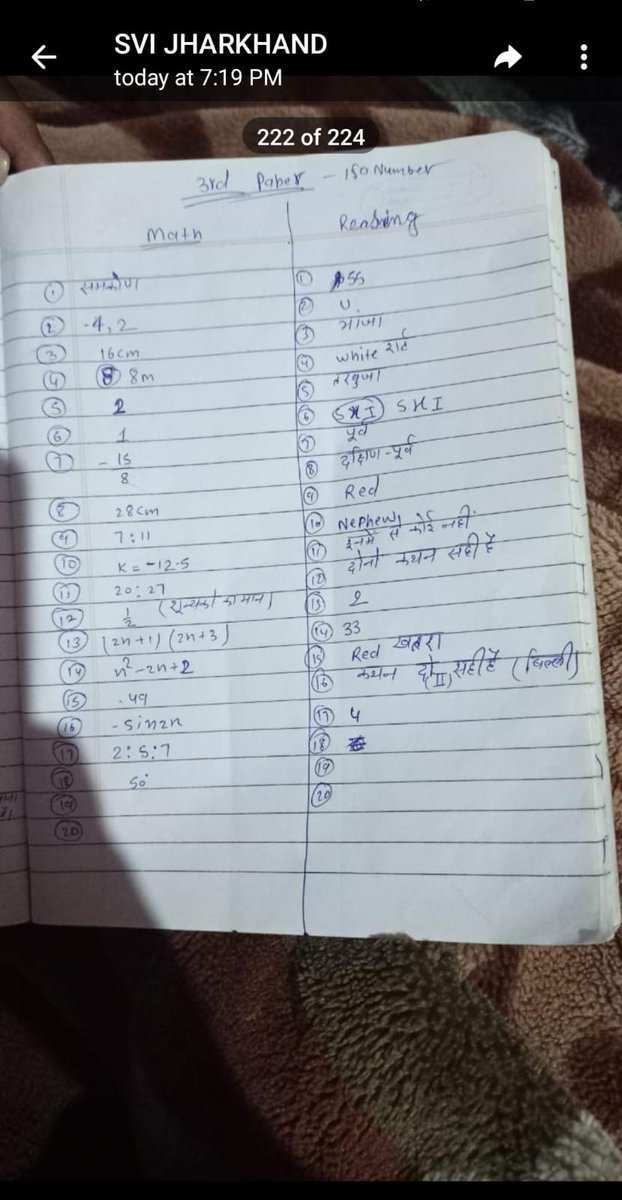 SVI JHARKHAND
today at 7:19 PM
222 of 224
3rd Paber - 150 Number
Math
① समकोण
② -4, 2
③ 16cm
④ 8m
⑤ 2
⑥ 1
⑦ -15
8
⑧ 28cm
⑨ 7:11
⑩ K = -12.5
⑪ 20:27
⑫ 1/2 (शून्यको का मान)
⑬ (2n+1) (2n+3)
⑭ n²-2n+2
⑮ .49
⑯ -sin2n
⑰ 2:5:7
⑱ 50°
⑲
⑳
Reasing
① 55
② U
③ भांजा
④ white शर्ट
⑤ तरबुजा
⑥ SHI SHI
⑦ पूर्व
⑧ दक्षिण-पूर्व
⑨ Red
⑩ Nephew,
⑪ इनमें से कोई नहीं
⑫ दोनो कथन सही है
⑬ 2
⑭ 33
⑮ Red खतरा
⑯ कथन दो (II) सही है (बिल्ली)
⑰ 4
⑱
⑲
⑳